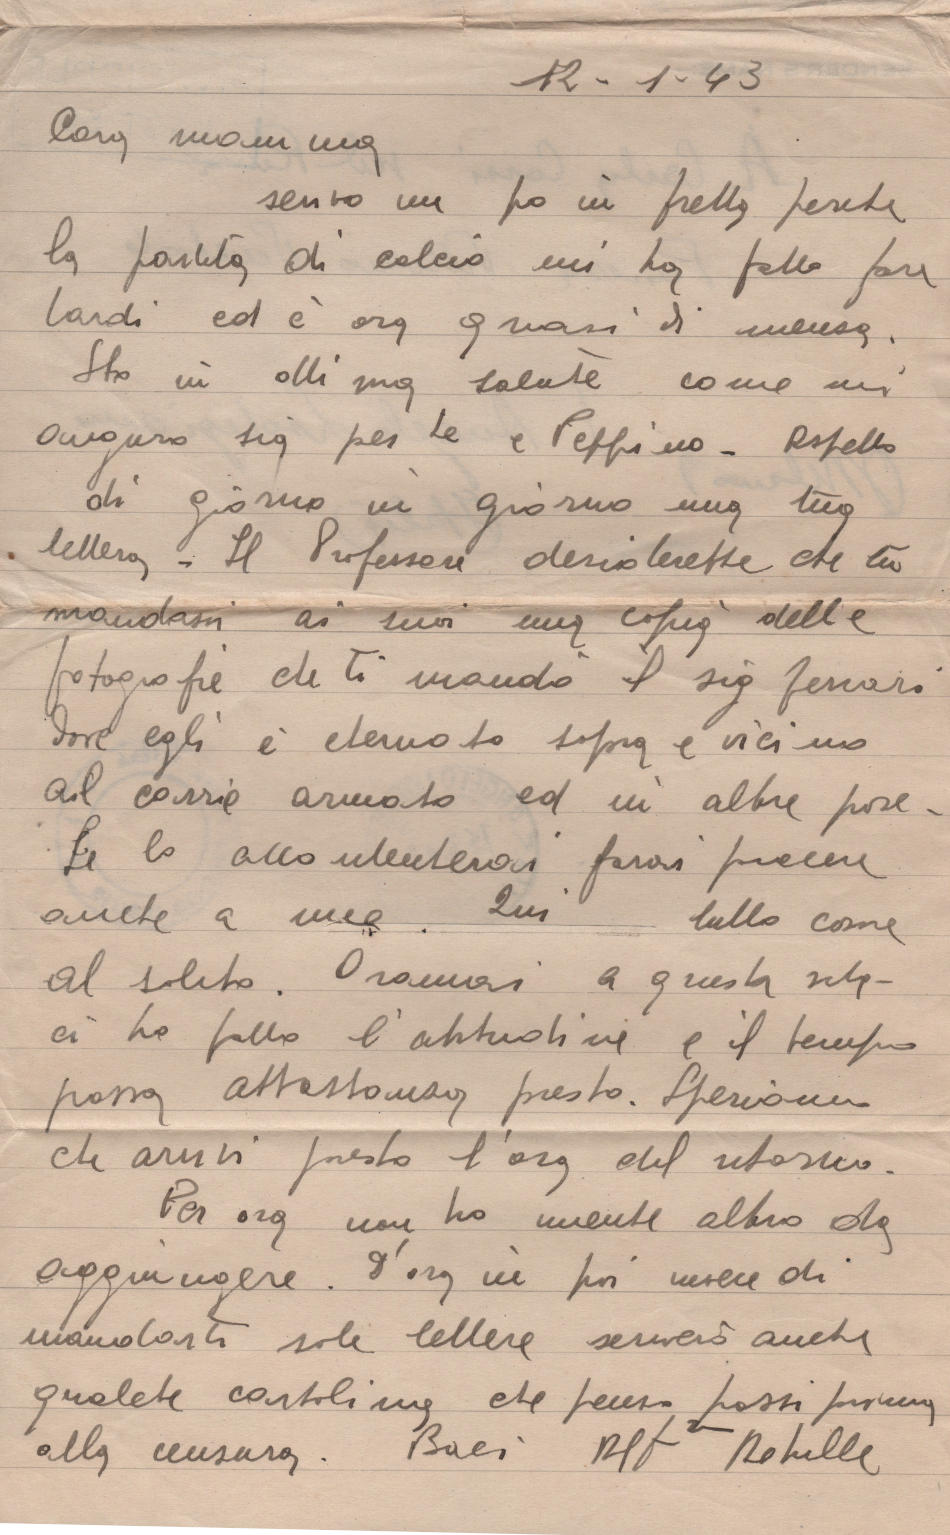 12-1-43
Cara mamma
scrivo un po in fretta perche
la partita di calcio mi ha fatto fare
tardi ed è ora quasi di mensa.
Sto in ottima salute come mi
auguro sia per te e Peppino - Aspetto
di giorno in giorno una tua
lettera - Il Professore desidererebbe che tu
mandassi ai suoi una copia delle
fotografie che ti mandò il sig Ferrari
dove egli è eternato sopra e vicino
al carro armato ed in altre pose -
Se lo accontenterai farai piacere
anche a me. Qui tutto come
al solito. Oramai a questa vita
ci ho fatto l'abitudine e il tempo
passa abbastanza presto. Speriamo
che arrivi presto l'ora del ritorno.
Per ora non ho niente altro da
aggiungere. D'ora in poi invece di
mandarti sole lettere scriverò anche
qualche cartolina che penso passi prima
alla censura. Baci Aff